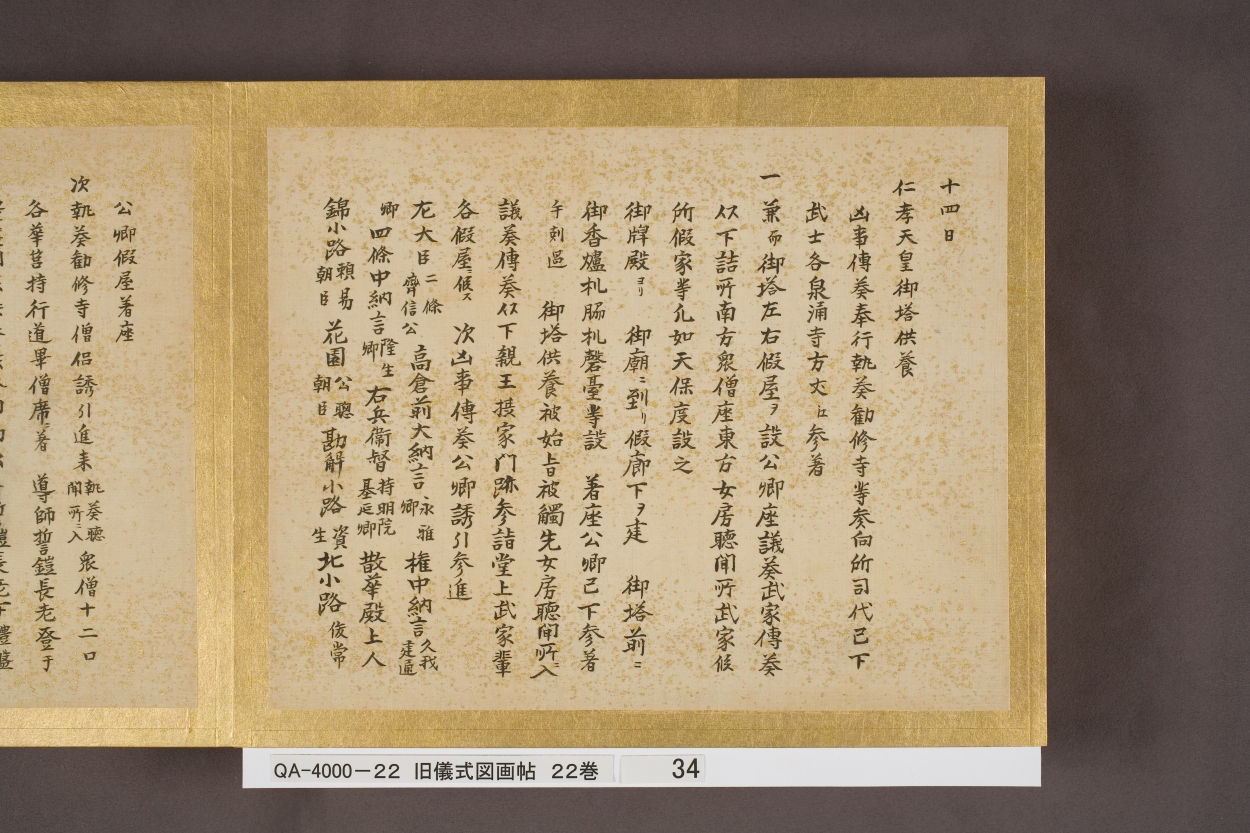 十四日
仁孝天皇御塔供養
凶事傳奏奉行執奏勸修寺等参向所司代已下
武士各泉涌寺方丈江参着
一兼而御塔左右假屋ヲ設公卿座議奏武家傳奏
以下詰所南方衆僧座東方女房聽聞所武家候
所假家等凡如天保度設之
御牌殿ヨリ 御廟ニ到リ假廊下ヲ建 御塔前ニ
御香爐机脇机磬臺等設 着座公卿已下参着
午刻過 御塔供養被始旨被觸先女房聽聞所ニ入
議奏傳奏以下親王摂家門跡参詣堂上武家輩
各假屋ニ候ス 次凶事傳奏公卿誘引参進
左大臣二條齊信公 高倉前大納言永雅卿 権中納言久我建通
卿四條中納言隆生卿 右兵衞督持明院基延卿 散華殿上人
錦小路頼易朝臣 花園公聰朝臣 勘解小路資生 北小路俊常
公卿假屋着座
次執奏勸修寺僧侶誘引進来執奏聽聞所ニ入 衆僧十二口
各華筥持行道畢僧席ニ着 導師誓鎧長老登于